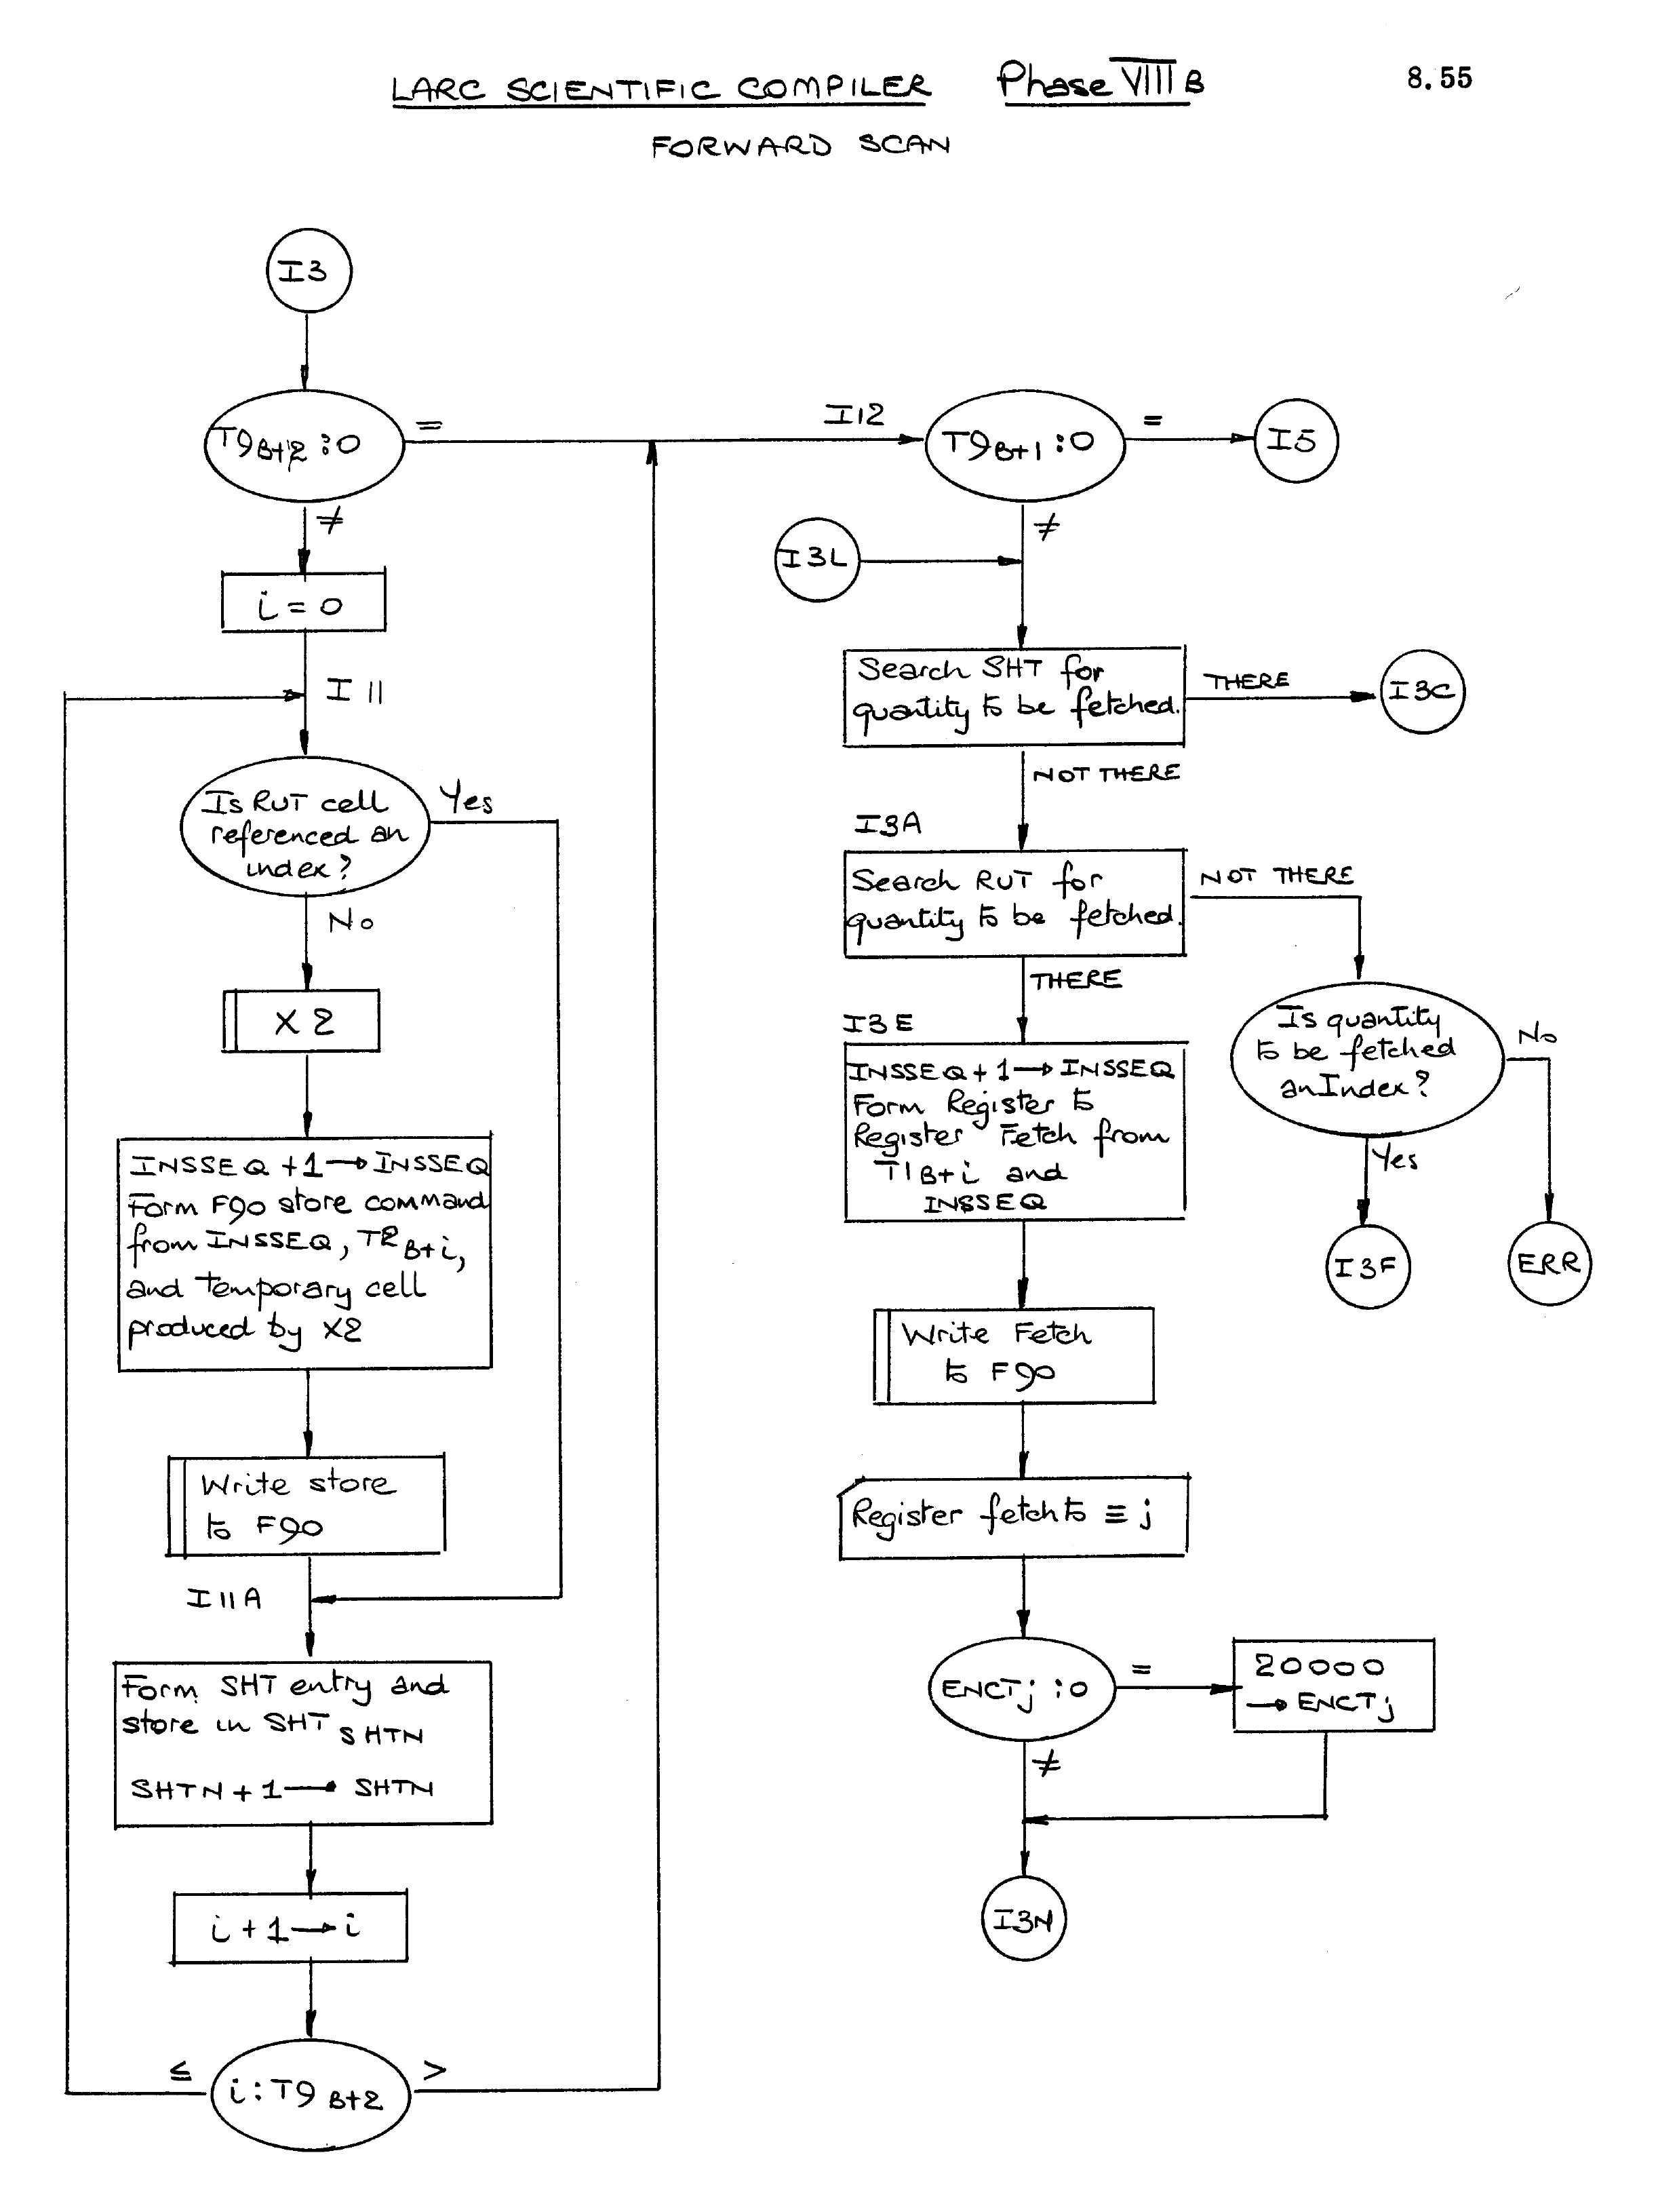 LARC SCIENTIFIC COMPILER Phase VIII B 8.55
FORWARD SCAN
I3
T9B+2 : 0
=
≠
i = 0
I11
Is RUT cell
referenced an
index?
Yes
No
X2
INSSEQ + 1 → INSSEQ
Form F90 store command
from INSSEQ, T2 B+i,
and temporary cell
produced by X2
Write store
to F90
I11A
Form SHT entry and
store in SHT SHTN
SHTN + 1 → SHTN
i + 1 → i
i : T9 B+2
≤
>
I12
T9B+1 : 0
=
I5
≠
I3L
Search SHT for
quantity to be fetched.
THERE
I3C
NOT THERE
I3A
Search RUT for
quantity to be fetched.
NOT THERE
THERE
Is quantity
to be fetched
an Index?
No
Yes
I3F
ERR
I3E
INSSEQ + 1 → INSSEQ
Form Register to
Register Fetch from
T1B+i and
INSSEQ
Write Fetch
to F90
Register fetch to ≡ j
ENCTj : 0
=
20000
→ ENCTj
≠
I3N